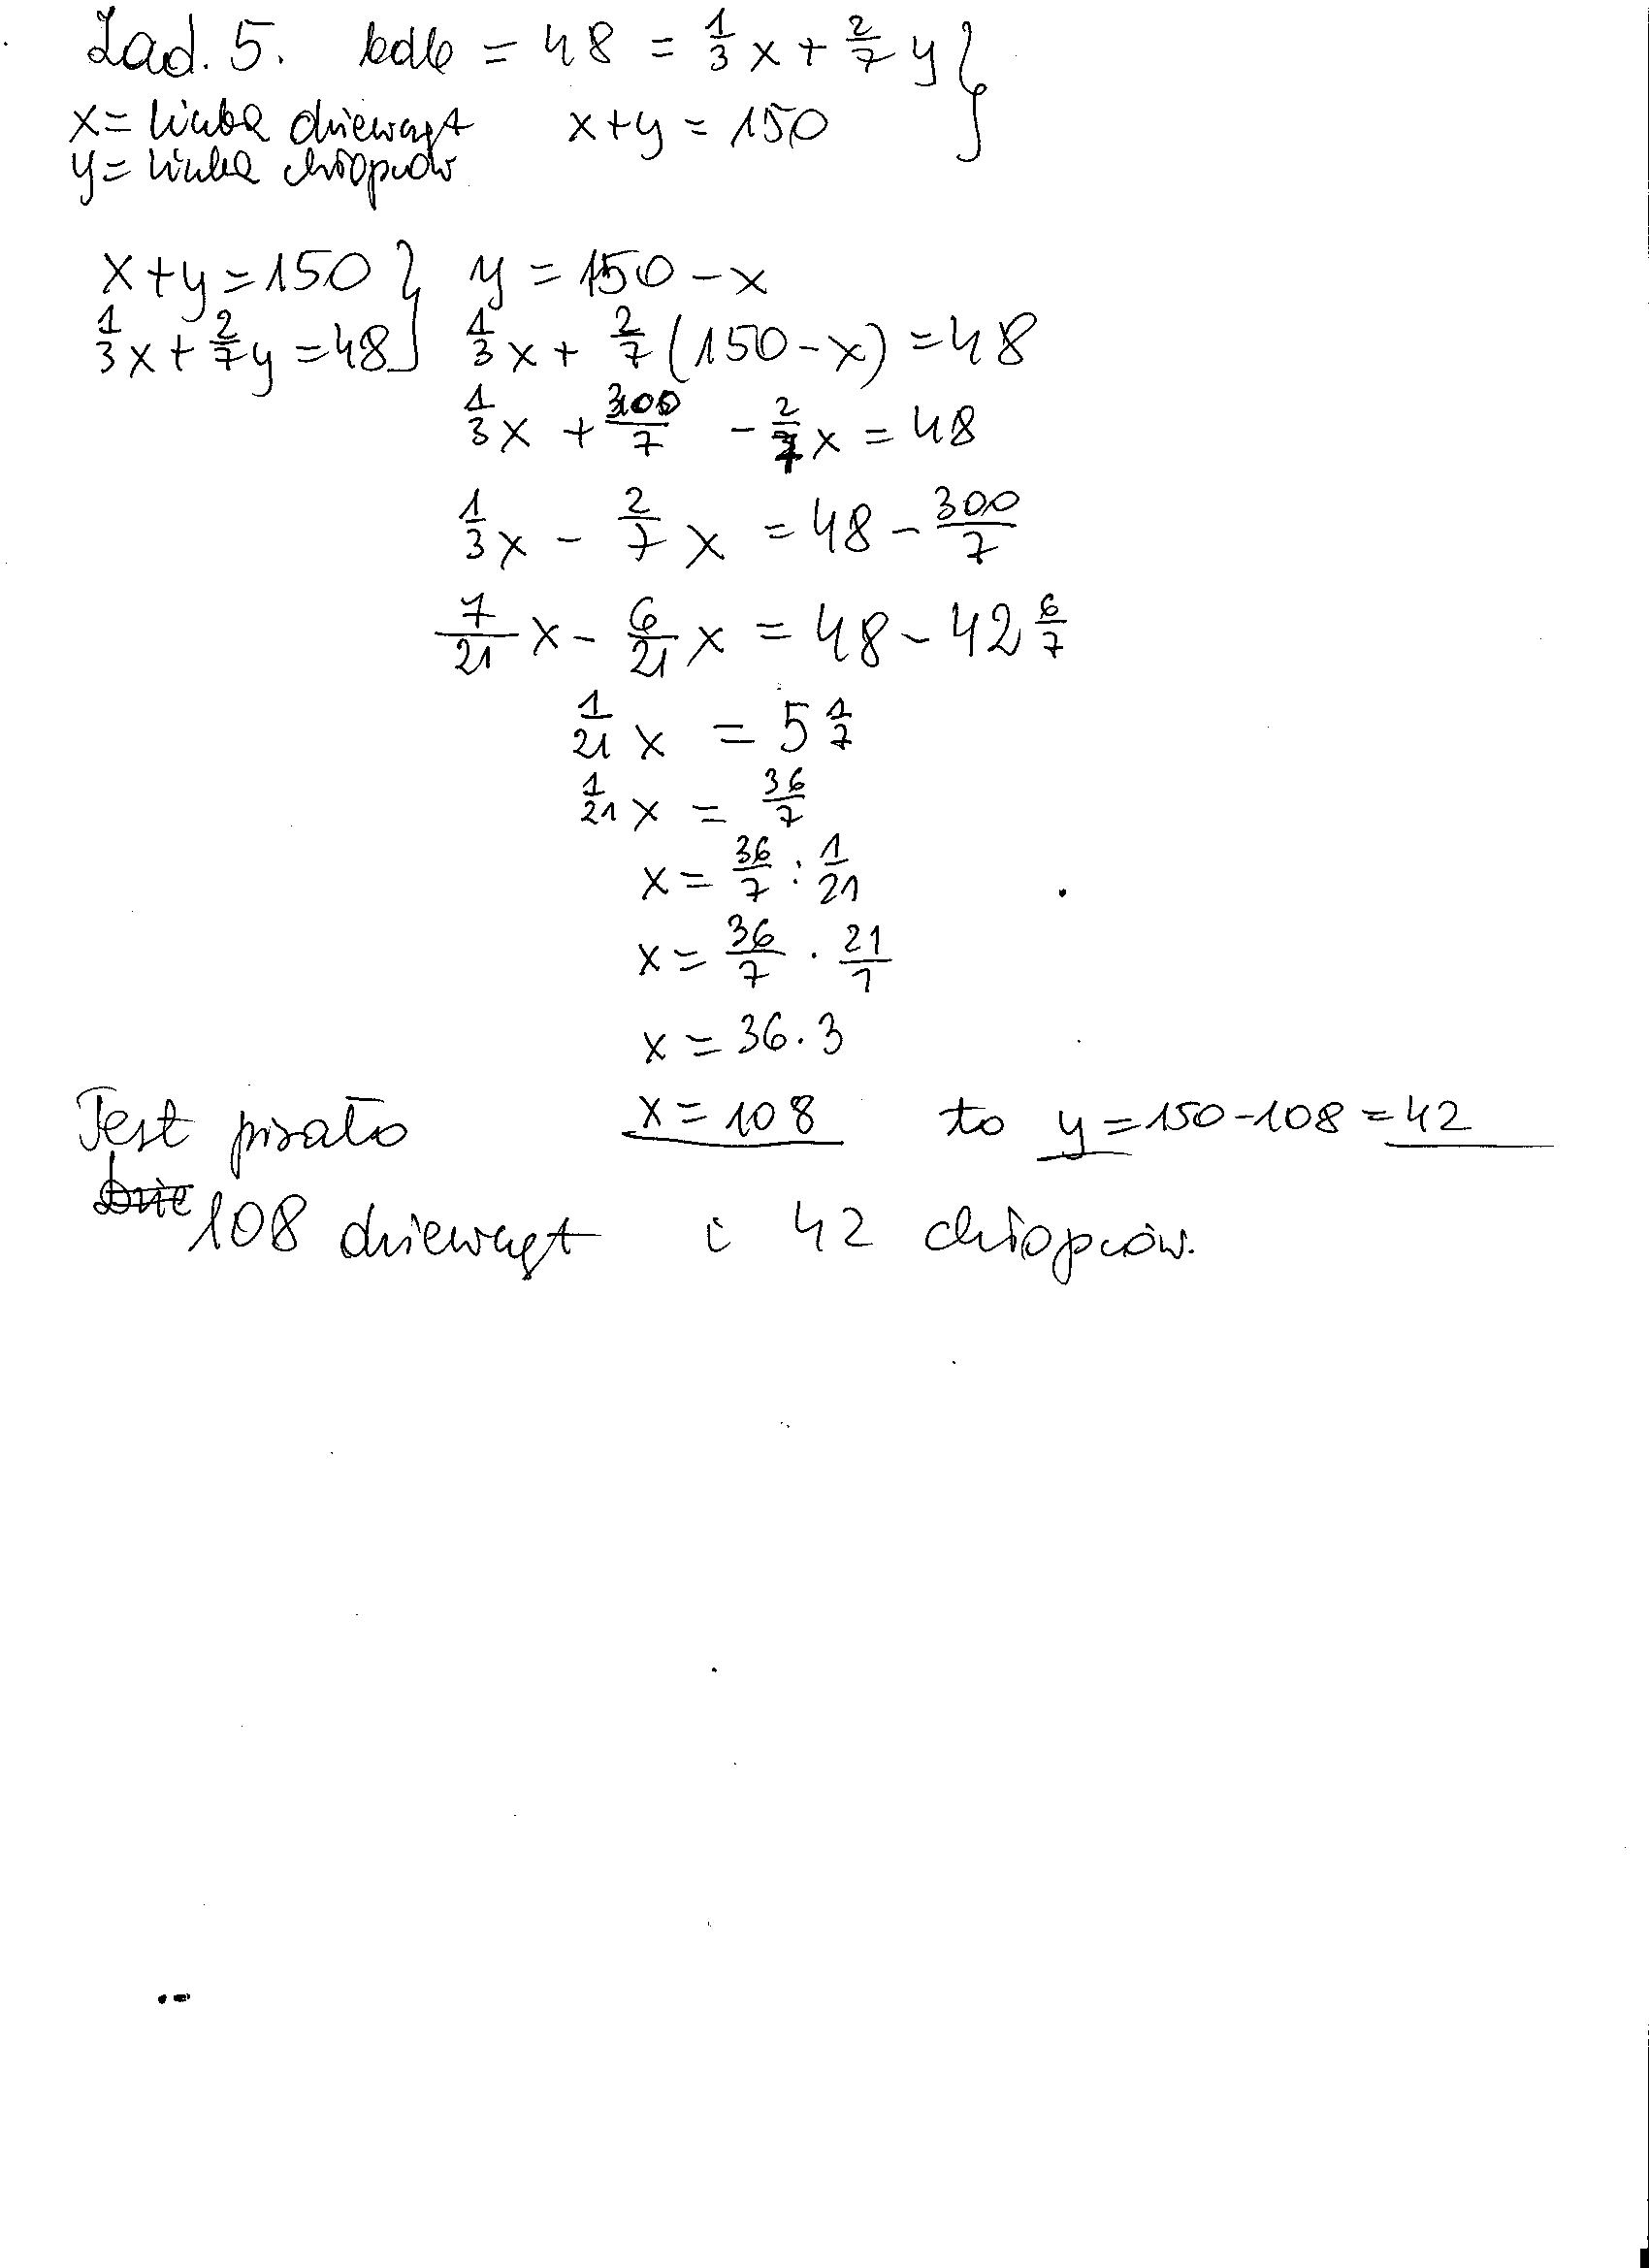 Zad. 5. bdb = 48 = 1/3 x + 2/7 y }
x = liczba dziewcząt x + y = 150
y = liczba chłopców
x + y = 150 } y = 150 - x
1/3 x + 2/7 y = 48 1/3 x + 2/7 (150 - x) = 48
1/3 x + 300/7 - 2/7 x = 48
1/3 x - 2/7 x = 48 - 300/7
7/21 x - 6/21 x = 48 - 42 6/7
1/21 x = 5 1/7
1/21 x = 36/7
x = 36/7 : 1/21
x = 36/7 · 21/1
x = 36 · 3
Test pisało x = 108 to y = 150 - 108 = 42
108 dziewcząt i 42 chłopców.